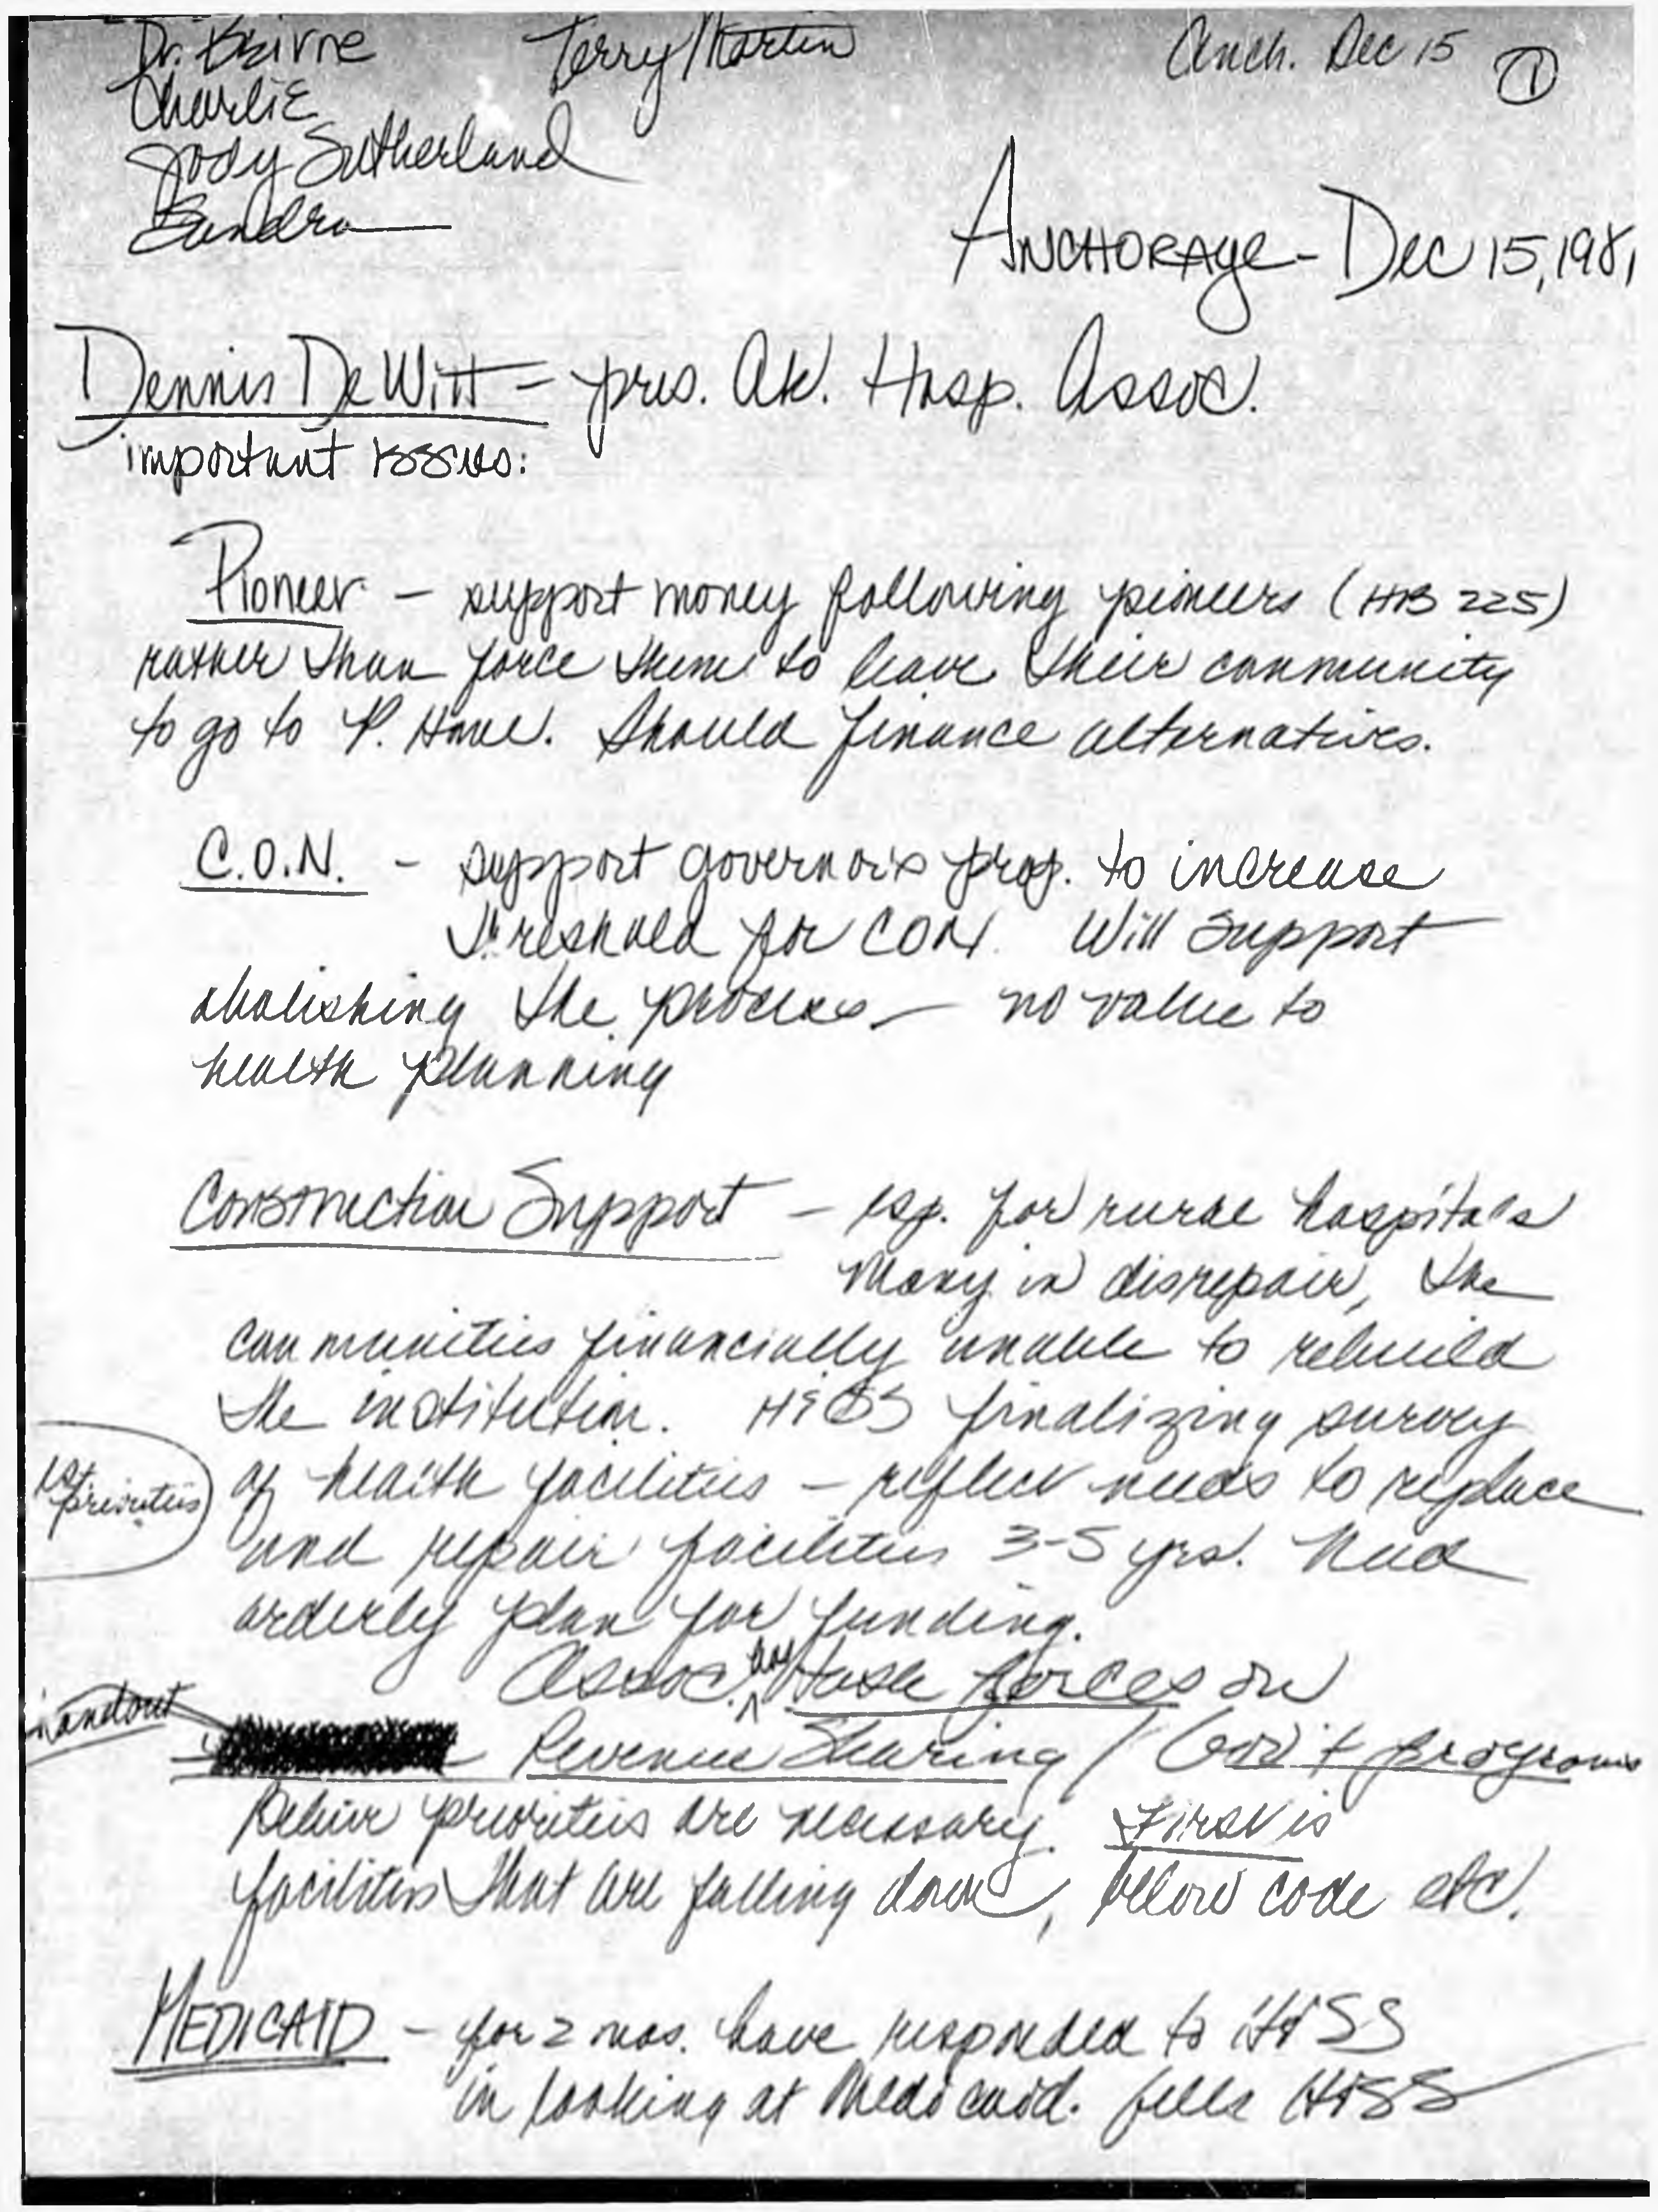 Dr. Beirne Terry Martin Anch. Dec 15 ①
Charlie
Jody Sutherland
Sandra
ANCHORAge - Dec 15, 1981
Dennis DeWitt - pres. Ak. Hosp. Assoc.
important issues:
Pioneer - support money following pioneers (HB 225)
rather than force them to leave their community
to go to P. Home. Should finance alternatives.
C.O.N. - support governor's prop. to increase
threshold for CON. Will support
abolishing the process - no value to
health planning
Construction Support - esp. for rural hospitals
Many in disrepair, the
communities financially unable to rebuild
the institution. H&SS finalizing survey
1st priorities
of health facilities - reflect needs to replace
and repair facilities 3-5 yrs. Need
orderly plan for funding.
Assoc. has task forces on
handout
Revenue Sharing / Gov't programs
believe priorities are necessary. First is
facilities that are falling down, below code etc.
MEDICAID - for 2 mos. have responded to H&SS
in looking at Medicaid. feels H&SS